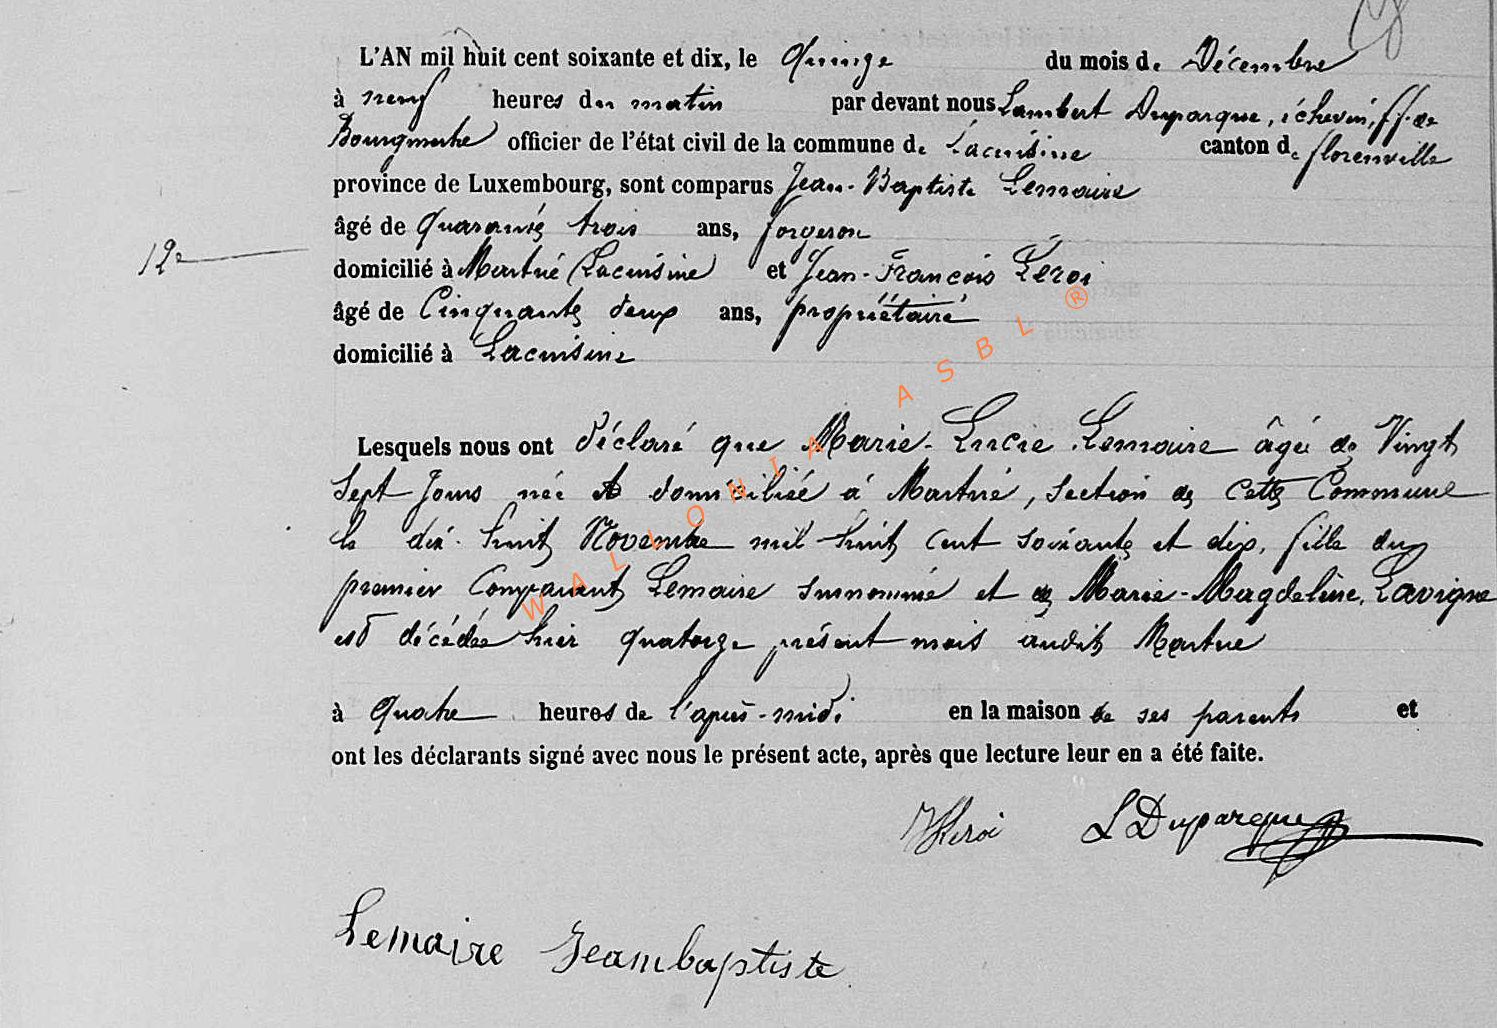 L'AN mil huit cent soixante et dix, le Quinze du mois de Décembre
à neuf heures du matin par devant nous Lambert Duparque, échevin, ff. de
Bourgmestre officier de l'état civil de la commune de Lacuisine canton de florenville
province de Luxembourg, sont comparus Jean-Baptiste Lemaire
âgé de Quarante trois ans, forgeron
12e
domicilié à Martué (Lacuisine) et Jean-François Leroi
âgé de Cinquante deux ans, propriétaire
domicilié à Lacuisine
Lesquels nous ont déclaré que Marie-Lucie Lemaire âgée de Vingt
Sept Jours née et domiciliée à Martué, section de cette Commune
le dix-huit Novembre mil huit cent soixante et dix, fille du
premier Comparant Lemaire surnommé et de Marie-Magdeleine Lavigne
est décédée hier quatorze présent mois audit Martue
à Quatre heures de l'après-midi en la maison de ses parents et
ont les déclarants signé avec nous le présent acte, après que lecture leur en a été faite.
Leroi L Duparque
Lemaire Jeambaptiste
WALLONIA ASBL ®